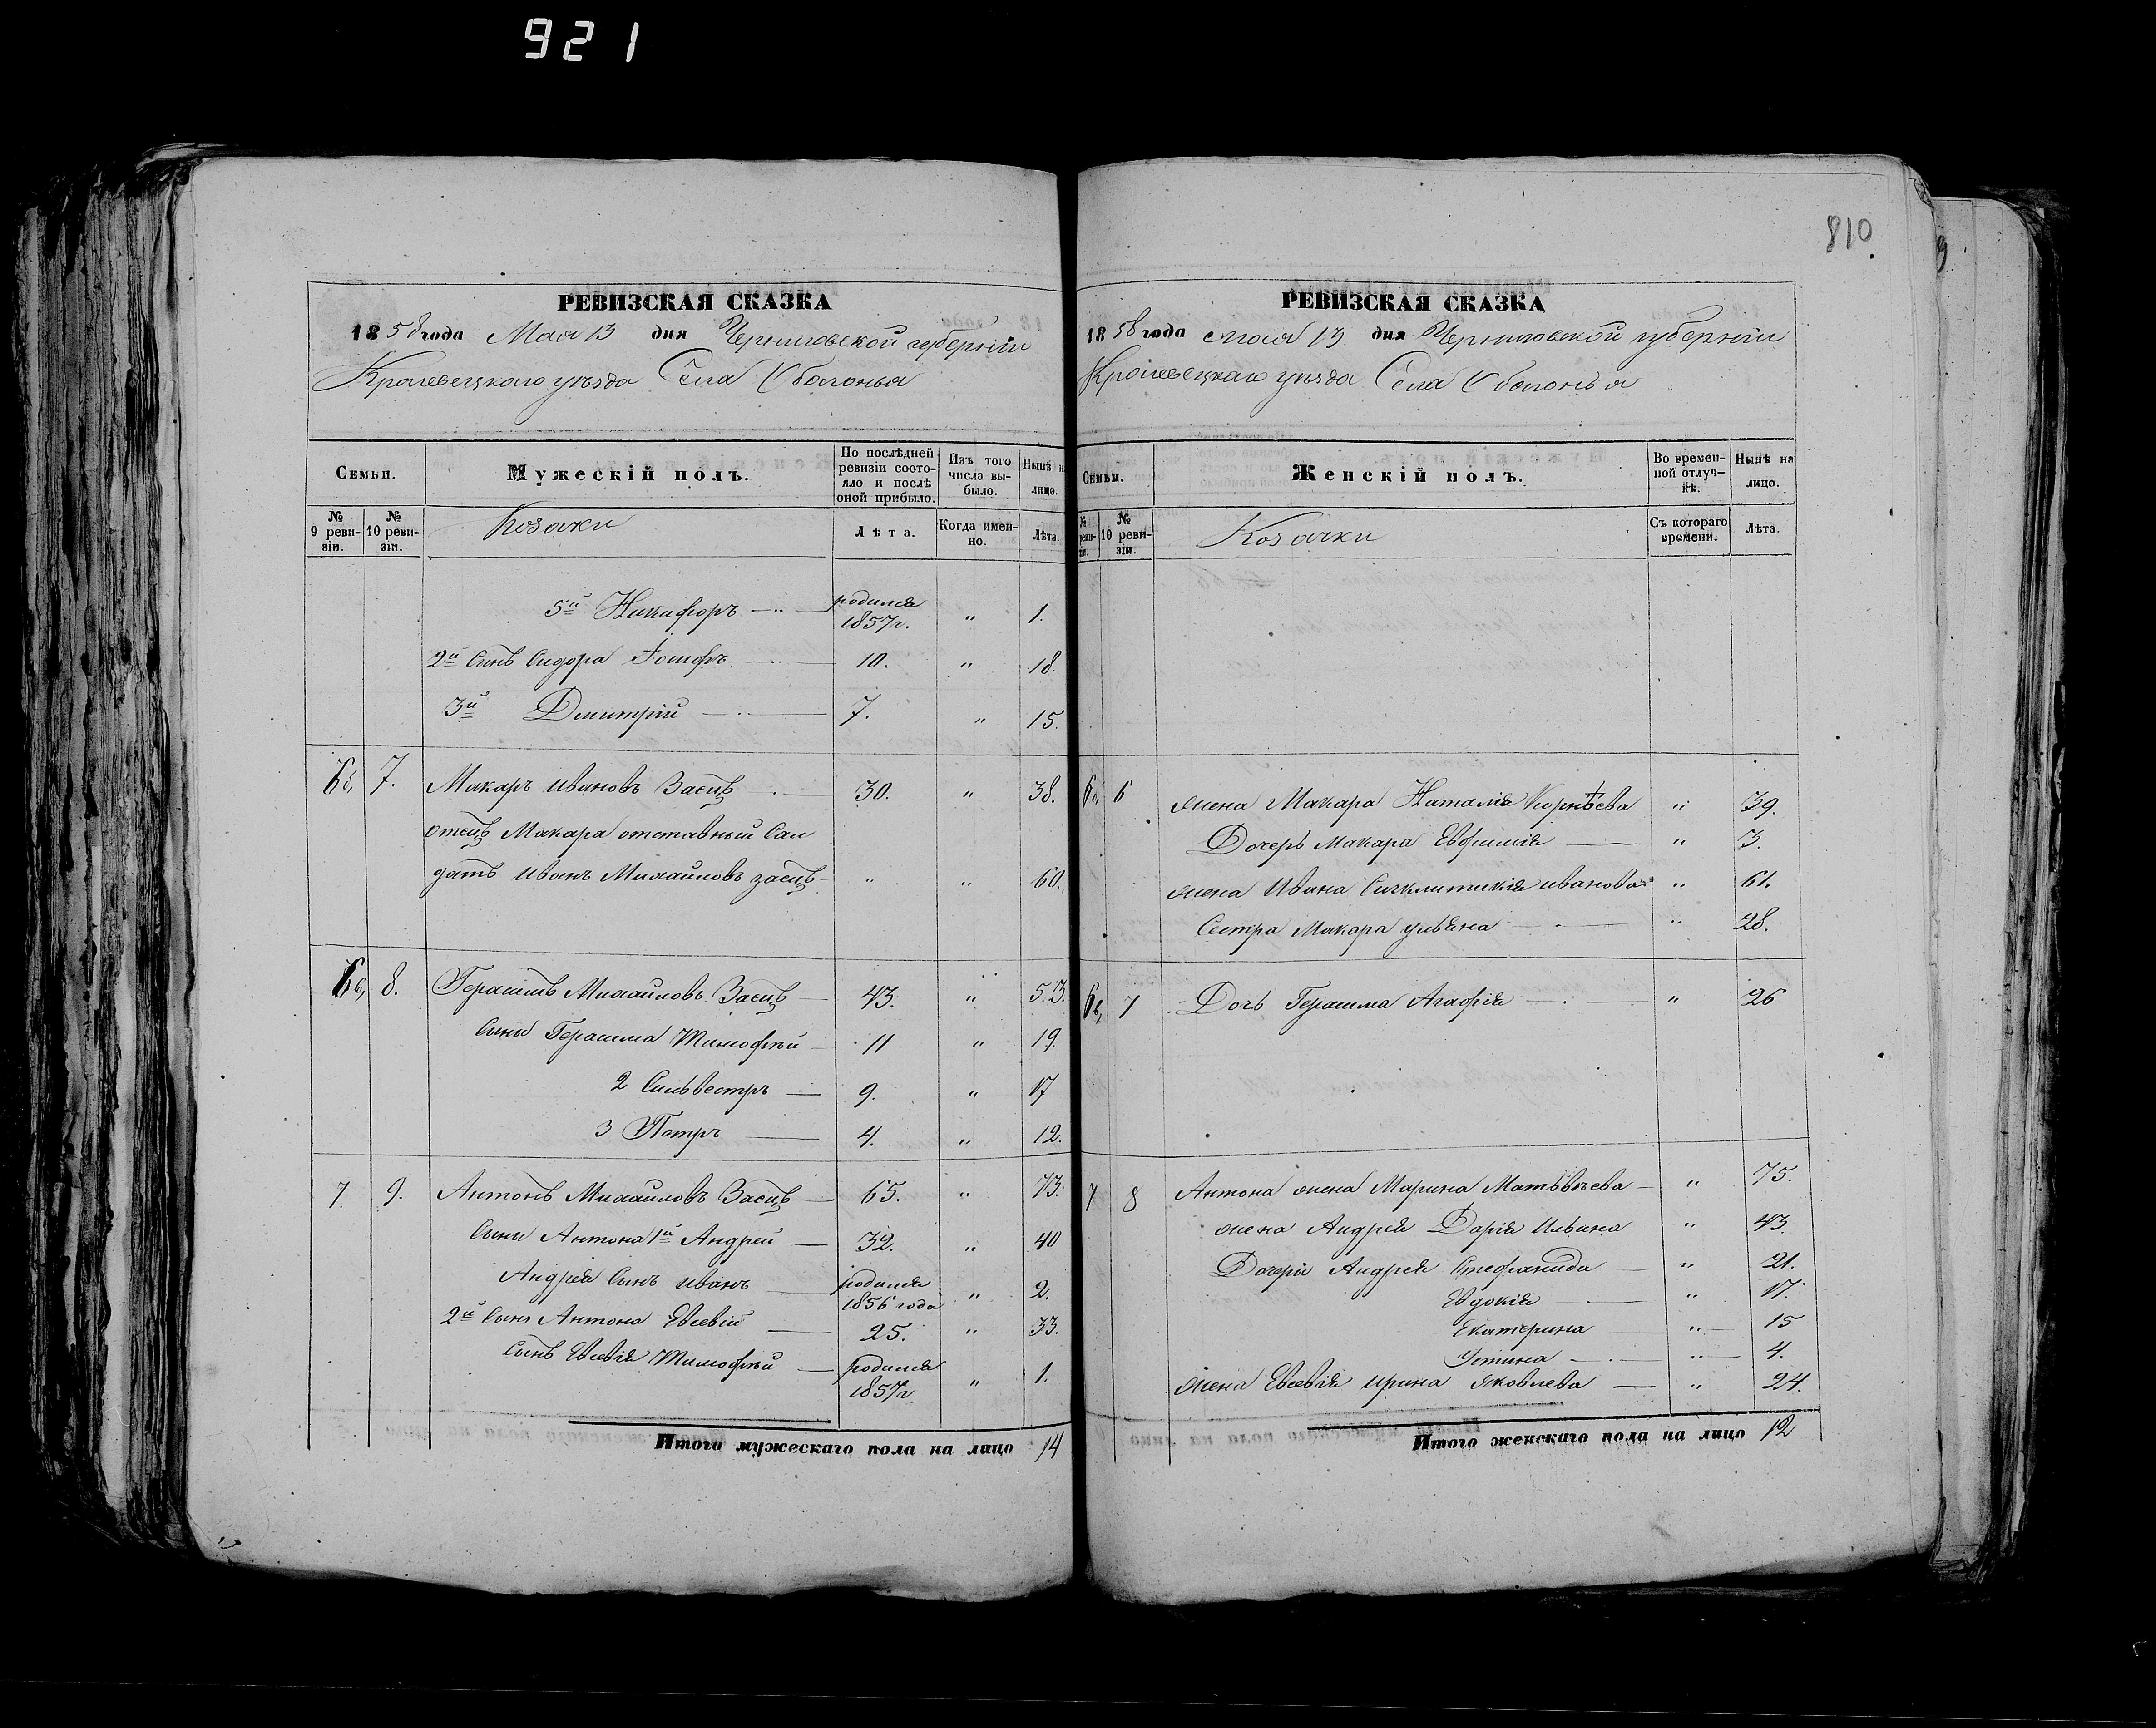 921
810
РЕВИЗСКАЯ СКАЗКА
1858 года Мая 13 дня Черниговской губерніи
Кролевецкаго уѣзда Села Оболонья
Семьи.
Мужескій полъ.
По послѣдней ревизіи состояло и послѣ оной прибыло.
Изъ того числа выбыло.
Нынѣ на лицо.
№ 9 ревизіи.
№ 10 ревизіи.
Козаки
Лѣта.
Когда именно.
Лѣта.
5й Никифоръ родился 1857г. " 1.
2й Сынъ Сидора Іосифъ 10. " 18.
3й Дмитрій 7. " 15.
6б, 7. Макаръ Ивановъ Заецъ 30. " 38.
отецъ Макара отставный Сол
датъ Иванъ Михайловъ заецъ " " 60.
6в, 8. Герасимъ Михайловъ Заецъ 43. " 53.
Сыны Герасима Тимофѣй 11 " 19.
2 Сильвестръ 9. " 17
3 Петръ 4. " 12.
7. 9. Антонъ Михайловъ Заецъ 65. " 73.
Сыны Антона 1й Андрей 32. " 40
Андрея Сынъ Иванъ родился 1856 года " 2.
2й Сынъ Антона Евсевій 25. " 33.
Сынъ Евсевія Тимофѣй родился 1857г. " 1.
Итого мужескаго пола на лицо 14
РЕВИЗСКАЯ СКАЗКА
1858 года мая 13 дня Черниговской губерніи
Кролевецкаго уѣзда Села Оболонья
Семьи.
Женскій полъ.
Во временной отлучкѣ.
Нынѣ на лицо.
№ ревизіи.
№ 10 ревизіи.
Козачки
Съ котораго времени.
Лѣта.
6б, 6 жена Макара Наталія Корнѣева " 39.
Дочерь Макара Евфимія " 3.
жена Ивана Сигклитикія иванова " 61.
Сестра Макара ульяна " 28.
6в, 7 Дочь Герасима Агафія " 26
7 8 Антона жена Марина Матвѣева " 75.
жена Андрея Дарія Ильина " 43.
Дочери Андрея Стефанида " 21.
Евдокія " 17.
Екатерина " 15
Устина " 4.
жена Евсевія ирина яковлева " 24.
Итого женскаго пола на лицо 12